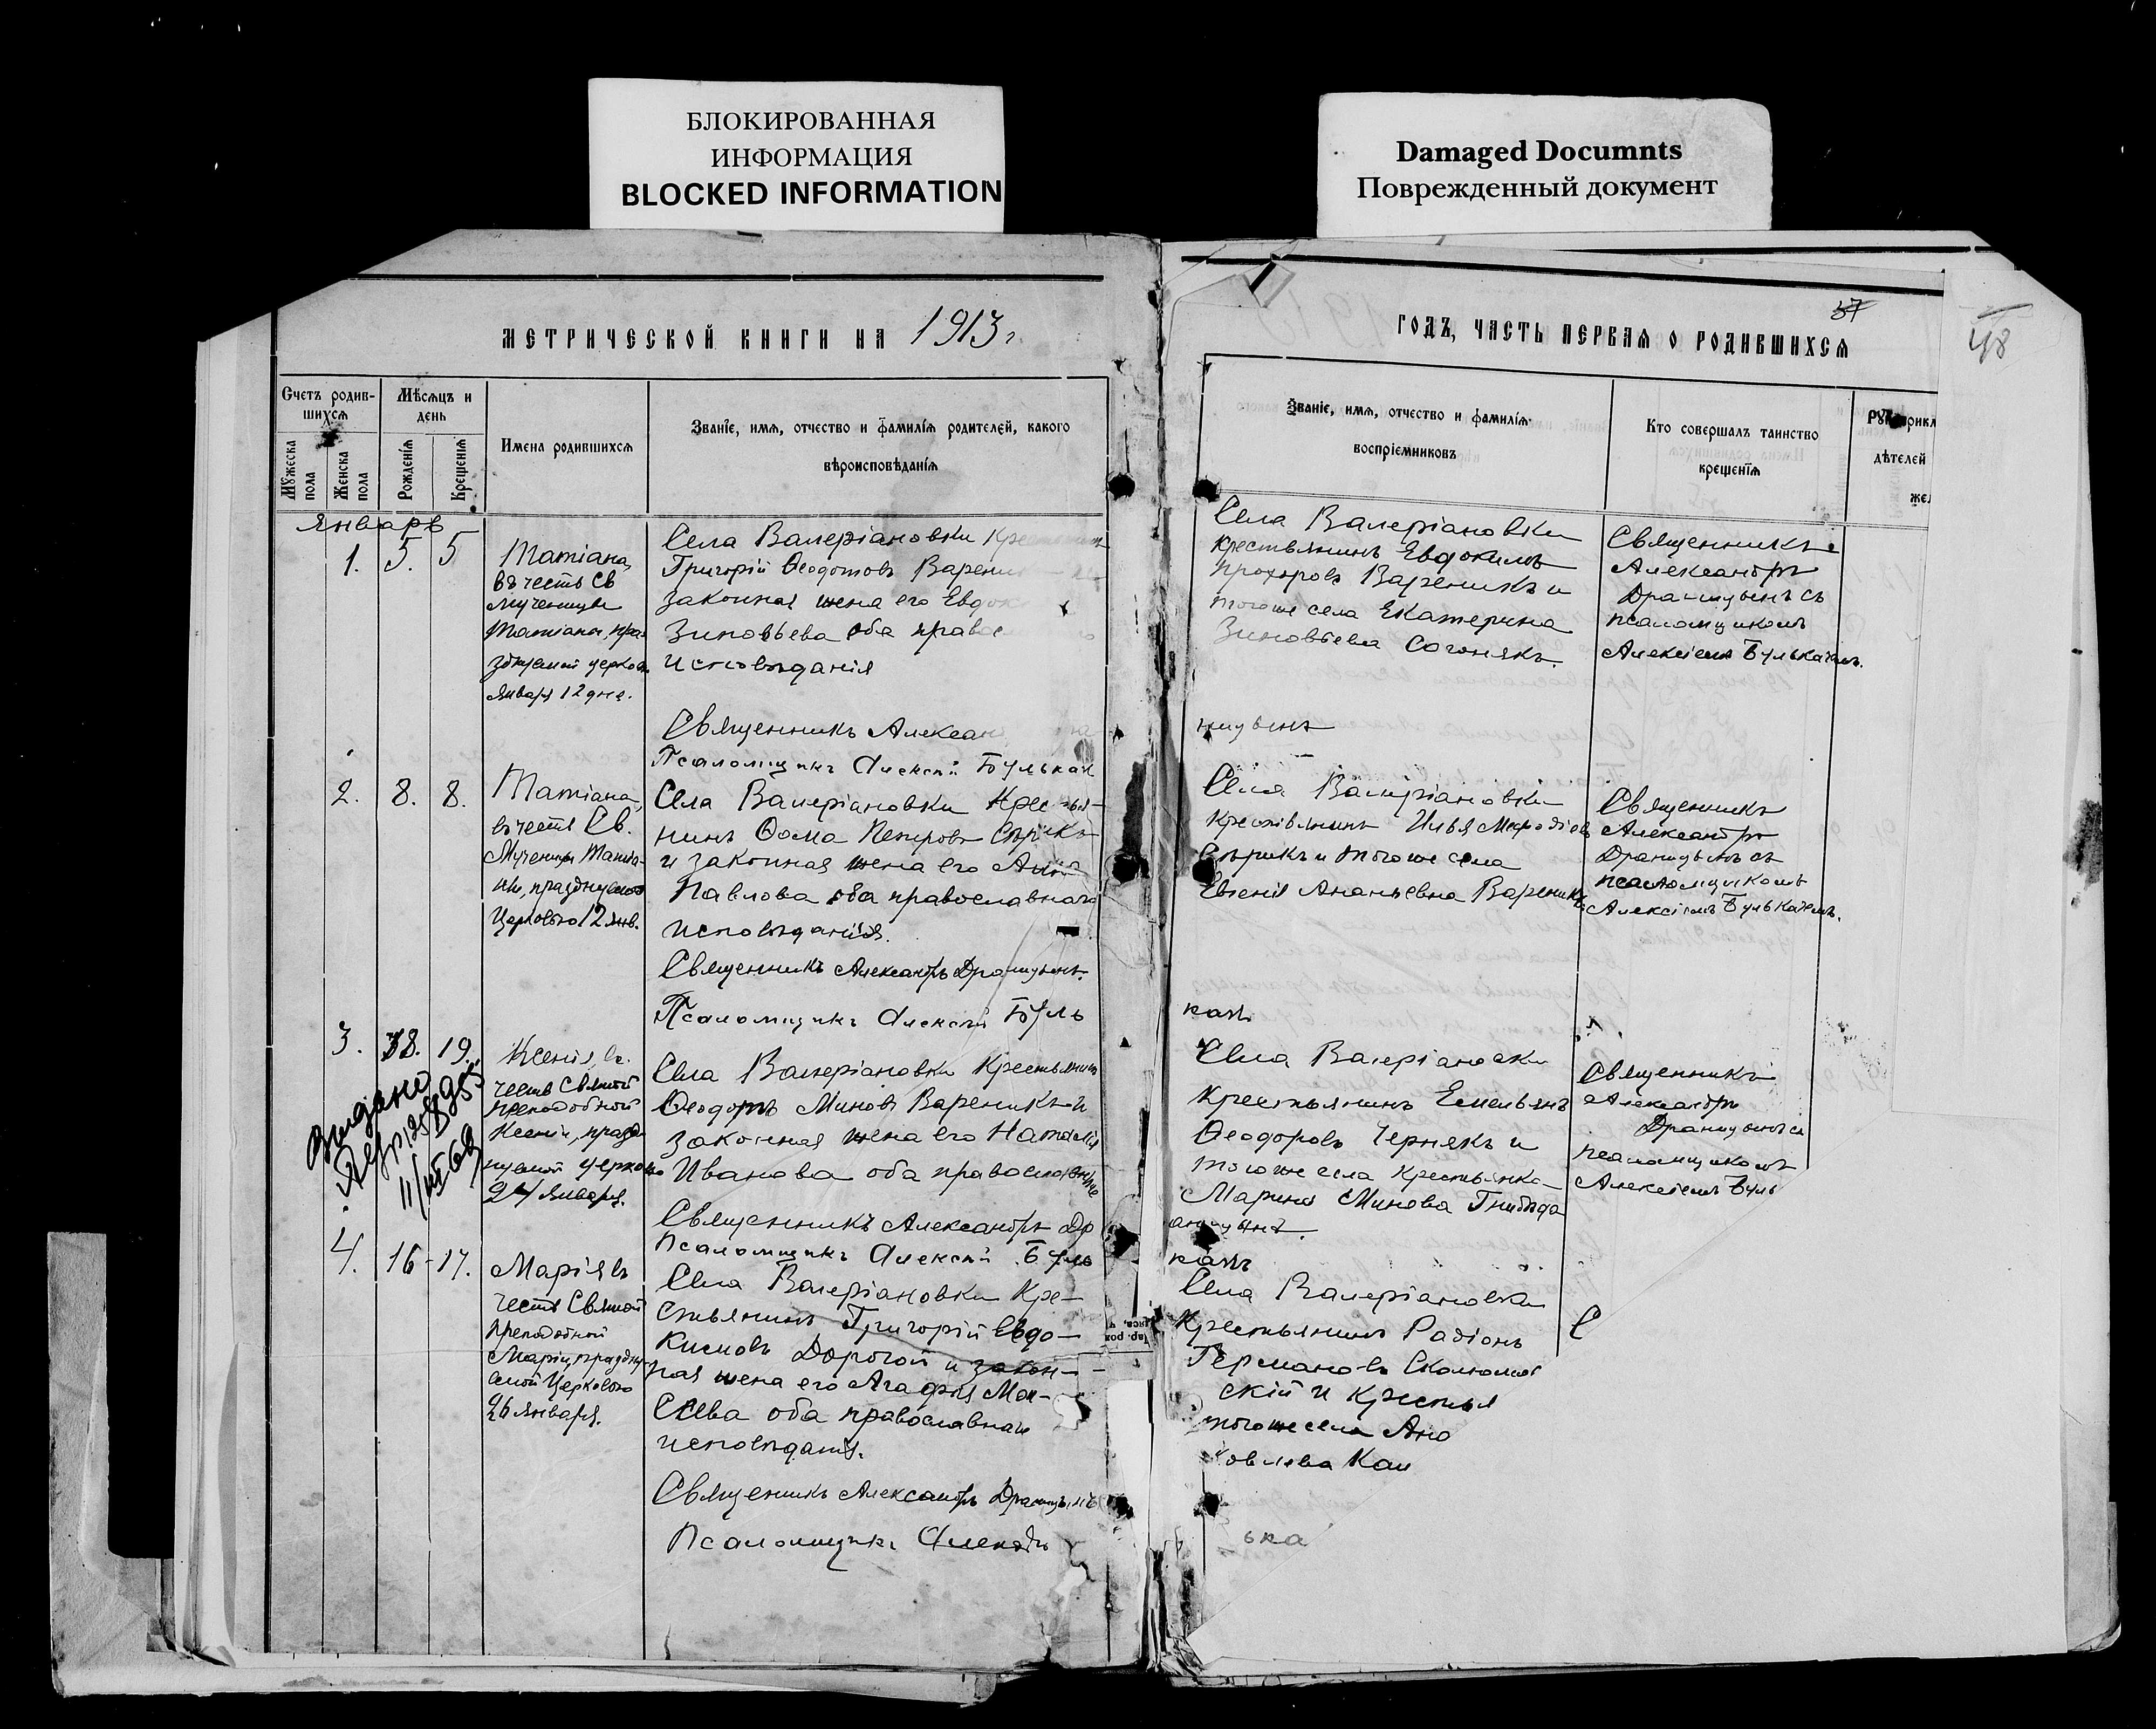 БЛОКИРОВАННАЯ
ИНФОРМАЦИЯ
BLOCKED INFORMATION
Damaged Documnts
Поврежденный документ
МЕТРИЧЕСКОЙ КНИГИ НА 1913 г
Счетъ родив-
шихся
Мѣсяцъ и
день
Мужеска
пола
Женска
пола
Рожденія
Крещенія
Имена родившихся
Званіе, имя, отчество и фамилія родителей, какого
вѣроисповѣданія
Январь
1. 5. 5
Татіана,
въ честь Св
мученицы
Татіаны, пра
зднуемой церков.
Января 12 дня.
Села Валеріановки
Григорій Ѳеодотовъ
законная жена его
Зиновьева оба
исповѣданія
Священникъ
Псаломщикъ Алексій Булькач
2. 8. 8.
Татіана,
въ честь Св.
Мученицы Татіа-
ны, празднуемой
Церковью 12 янв.
Села Валеріановки Крестья-
нинъ Ѳома Петровъ Сѣрикъ
и законная жена его Анна
Павлова оба православнаго
исповѣданія.
Священникъ Александръ Драницынъ.
Псаломщикъ Алексій Буль
3. 18. 19.
Выдано
11/III 69
Ксенія, въ
честь Святой
преподобной
Ксеніи, празд-
нуемой церковью
24 Января.
Села Валеріановки Крестьянинъ
Ѳеодоръ Миновъ Вареникъ и
законная жена его Наталія
Иванова оба православные
Священникъ Александръ Др
Псаломщикъ Алексій Буль
4. 16 - 17.
Марія въ
честь Святой
преподобной
Маріи, праздну-
емой Церковью
26 января.
Села Валеріановки Кре-
стьянинъ Григорій Евдо-
кимовъ Дорогой и закон-
ная жена его Агафія Мои-
сеева оба православнаго
исповѣданія.
Священникъ Александръ Драницынъ
Псаломщикъ Алексѣй
37
48
ГОДЪ, ЧАСТЬ ПЕРВАЯ О РОДИВШИХСЯ
Званіе, имя, отчество и фамилія
воспріемниковъ
Кто совершалъ таинство
крещенія
дѣтелей
жел
Села Валеріановки
крестьянинъ Евдокимъ
Прохоровъ Вареникъ и
тогоже села Екатерина
Зиновьева
Священникъ
Александръ
Драницынъ съ
псаломщикомъ
Алексіемъ Булькачемъ.
ницынъ
Села Валеріановки
крестьянинъ Илья
Сѣрикъ и тогоже села
Евгенія Ананьевна Вареникъ
Священникъ
Александръ
Драницынъ съ
псаломщикомъ
Алексіемъ Булькачемъ.
качъ
Села Валеріановки
крестьянинъ Емельянъ
Ѳеодоровъ Чернякъ и
тогоже села Крестьянка
Марина Минова Гнибѣда
Священникъ
Александръ
Драницынъ съ
псаломщикомъ
Алексіемъ Буль
аницынъ.
качъ
Села Валеріановки
Крестьянинъ Радіонъ
Германовъ
скій и Крестья
тогоже села Ана
ковлева Каш
С
ька